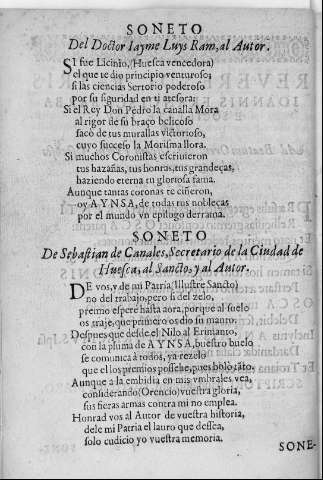 SONETO
Del Doctor Iayme Luys Ram, al Autor.
SI fue Licinio, (Huesca vencedora)
el que te dio principio venturoso;
si las ciencias Sertorio poderoso
por su siguridad en ti atesora;
Si el Rey Don Pedro la canalla Mora
al rigor de su braço belicoso
sacò de tus murallas victorioso,
cuyo sucesso la Morisma llora.
Si muchos Coronistas escriuieron
tus hazañas, tus honras, tus grandeças,
haziendo eterna tu gloriosa fama.
Aunque tantas coronas te ciñeron,
oy AYNSA, de todas tus noblecas
por el mundo vn epilogo derrama.
SONETO
De Sebastian de Canales, Secretario de la Ciudad de
Huesca, al Sancto, y al Autor.
DE vos, y de mi Patria (Illustre Sancto)
no del trabajo, pero si del zelo,
premio espere hasta aora, porque al suelo
os traje, que primero os dio su manto.
Despues que desde el Nilo al Erimanto,
con la pluma de AYNSA, buestro buelo
se comunica à todos, ya rezelo
que el los premios possehe, pues bolò tãto,
Aunque a la embidia en mis vmbrales vea,
considerando (Orencio) vuestra gloria,
sus fieras armas contra mi no emplea.
Honrad vos al Autor de vuestra historia,
dele mi Patria el lauro que dessea,
solo cudicio yo vuestra memoria.
SONE-